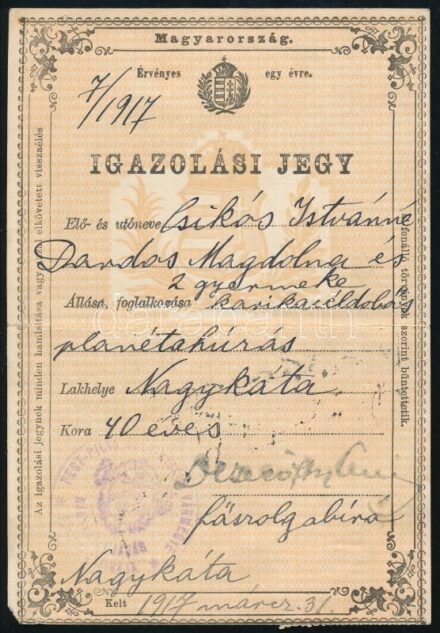 Magyarország.
Érvényes egy évre.
7/1917
IGAZOLÁSI JEGY
Elő- és utóneve Csikós Istvánné
Dardos Magdolna és
2 gyermeke
Állása, foglalkozása karikacéldobás
planétahúzás
Lakhelye Nagykáta
Kora 40 éves
főszolgabíró
Nagykáta
Kelt 1917 márcz. 31.
Az igazolási jegynek minden hamisítása vagy elkövetett visszaélés
fennálló törvények szerint büntettetik.